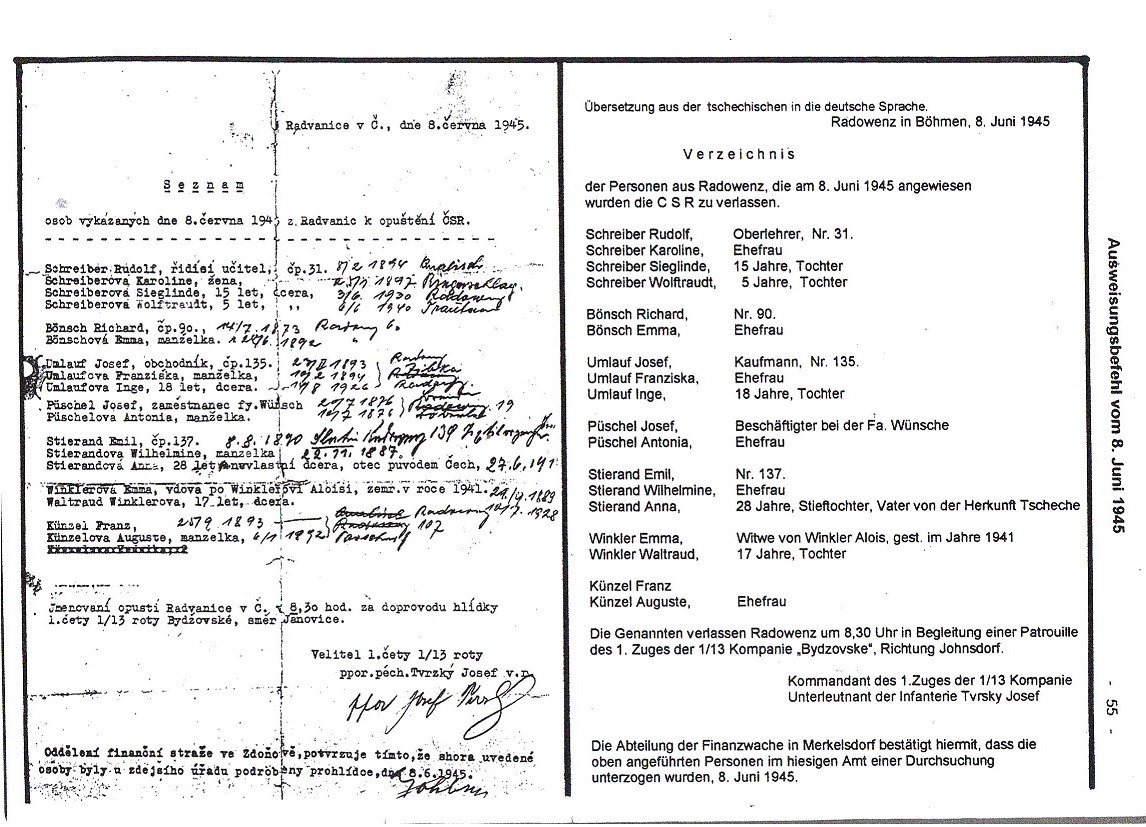 Radvanice v Č., dne 8.června 1945.
S e z n a m
osob vykázaných dne 8.června 1945 z Radvanic k opuštění ČSR.
Schreiber Rudolf, řídísí učitel, čp.31. 8/2 1894
Schreiberova Karoline, žena, 1897
Schreiberova Sieglinde, 15 let, dcera, 3/6. 1930
Schreiberova Wolftraudt, 5 let, ,, 6/6 1940
Bönsch Richard, čp.90., 14/7. 1873
Bönschová Emma, manželka. 1892 "
Umlauf Josef, obchodník, čp.135. 1893
Umlaufova Franziska, manželka, 1894
Umlaufova Inge, 18 let, dcera. 1926
Püschel Josef, zaměstnanec fy.Wünsch 1876 19
Püschelova Antonia, manželka. 1876
Stierand Emil, čp.137. 8.8.1870 139
Stierandova Wilhelmine, manzelka 22.11.1887.
Stierandová Anna, 28 let, nevlastní dcera, otec původem Čech, 27.6.191
Winklerová Emma, vdova po Winklerovi Aloisi, zemr.v roce 1941. 1889
Waltraud Winklerova, 17 let, dcera. 1928
Künzel Franz, 25/9 1893 107
Künzelova Auguste, manzelka, 6/1 1892
Jmenovaní opustí Radvanice v Č. v 8,30 hod. za doprovodu hlídky
1.čety 1/13 roty Bydžovské, směr Janovice.
Velitel 1.čety 1/13 roty
ppor.pěch.Tvrzký Josef v.r.
ppor Josef
Oddělení finanční stráže ve Zdoňově,potvrzuje tímto,že shora uvedené
osoby byly u zdejšího úřadu podrobeny prohlídce,dne 8.6.1945.
Übersetzung aus der tschechischen in die deutsche Sprache.
Radowenz in Böhmen, 8. Juni 1945
V e r z e i c h n i s
der Personen aus Radowenz, die am 8. Juni 1945 angewiesen
wurden die C S R zu verlassen.
Schreiber Rudolf, Oberlehrer, Nr. 31.
Schreiber Karoline, Ehefrau
Schreiber Sieglinde, 15 Jahre, Tochter
Schreiber Wolftraudt, 5 Jahre, Tochter
Bönsch Richard, Nr. 90.
Bönsch Emma, Ehefrau
Umlauf Josef, Kaufmann, Nr. 135.
Umlauf Franziska, Ehefrau
Umlauf Inge, 18 Jahre, Tochter
Püschel Josef, Beschäftigter bei der Fa. Wünsche
Püschel Antonia, Ehefrau
Stierand Emil, Nr. 137.
Stierand Wilhelmine, Ehefrau
Stierand Anna, 28 Jahre, Stieftochter, Vater von der Herkunft Tscheche
Winkler Emma, Witwe von Winkler Alois, gest. im Jahre 1941
Winkler Waltraud, 17 Jahre, Tochter
Künzel Franz
Künzel Auguste, Ehefrau
Die Genannten verlassen Radowenz um 8,30 Uhr in Begleitung einer Patrouille
des 1. Zuges der 1/13 Kompanie „Bydzovske", Richtung Johnsdorf.
Kommandant des 1.Zuges der 1/13 Kompanie
Unterleutnant der Infanterie Tvrsky Josef
Die Abteilung der Finanzwache in Merkelsdorf bestätigt hiermit, dass die
oben angeführten Personen im hiesigen Amt einer Durchsuchung
unterzogen wurden, 8. Juni 1945.
Ausweisungsbefehl vom 8. Juni 1945
- 55 -